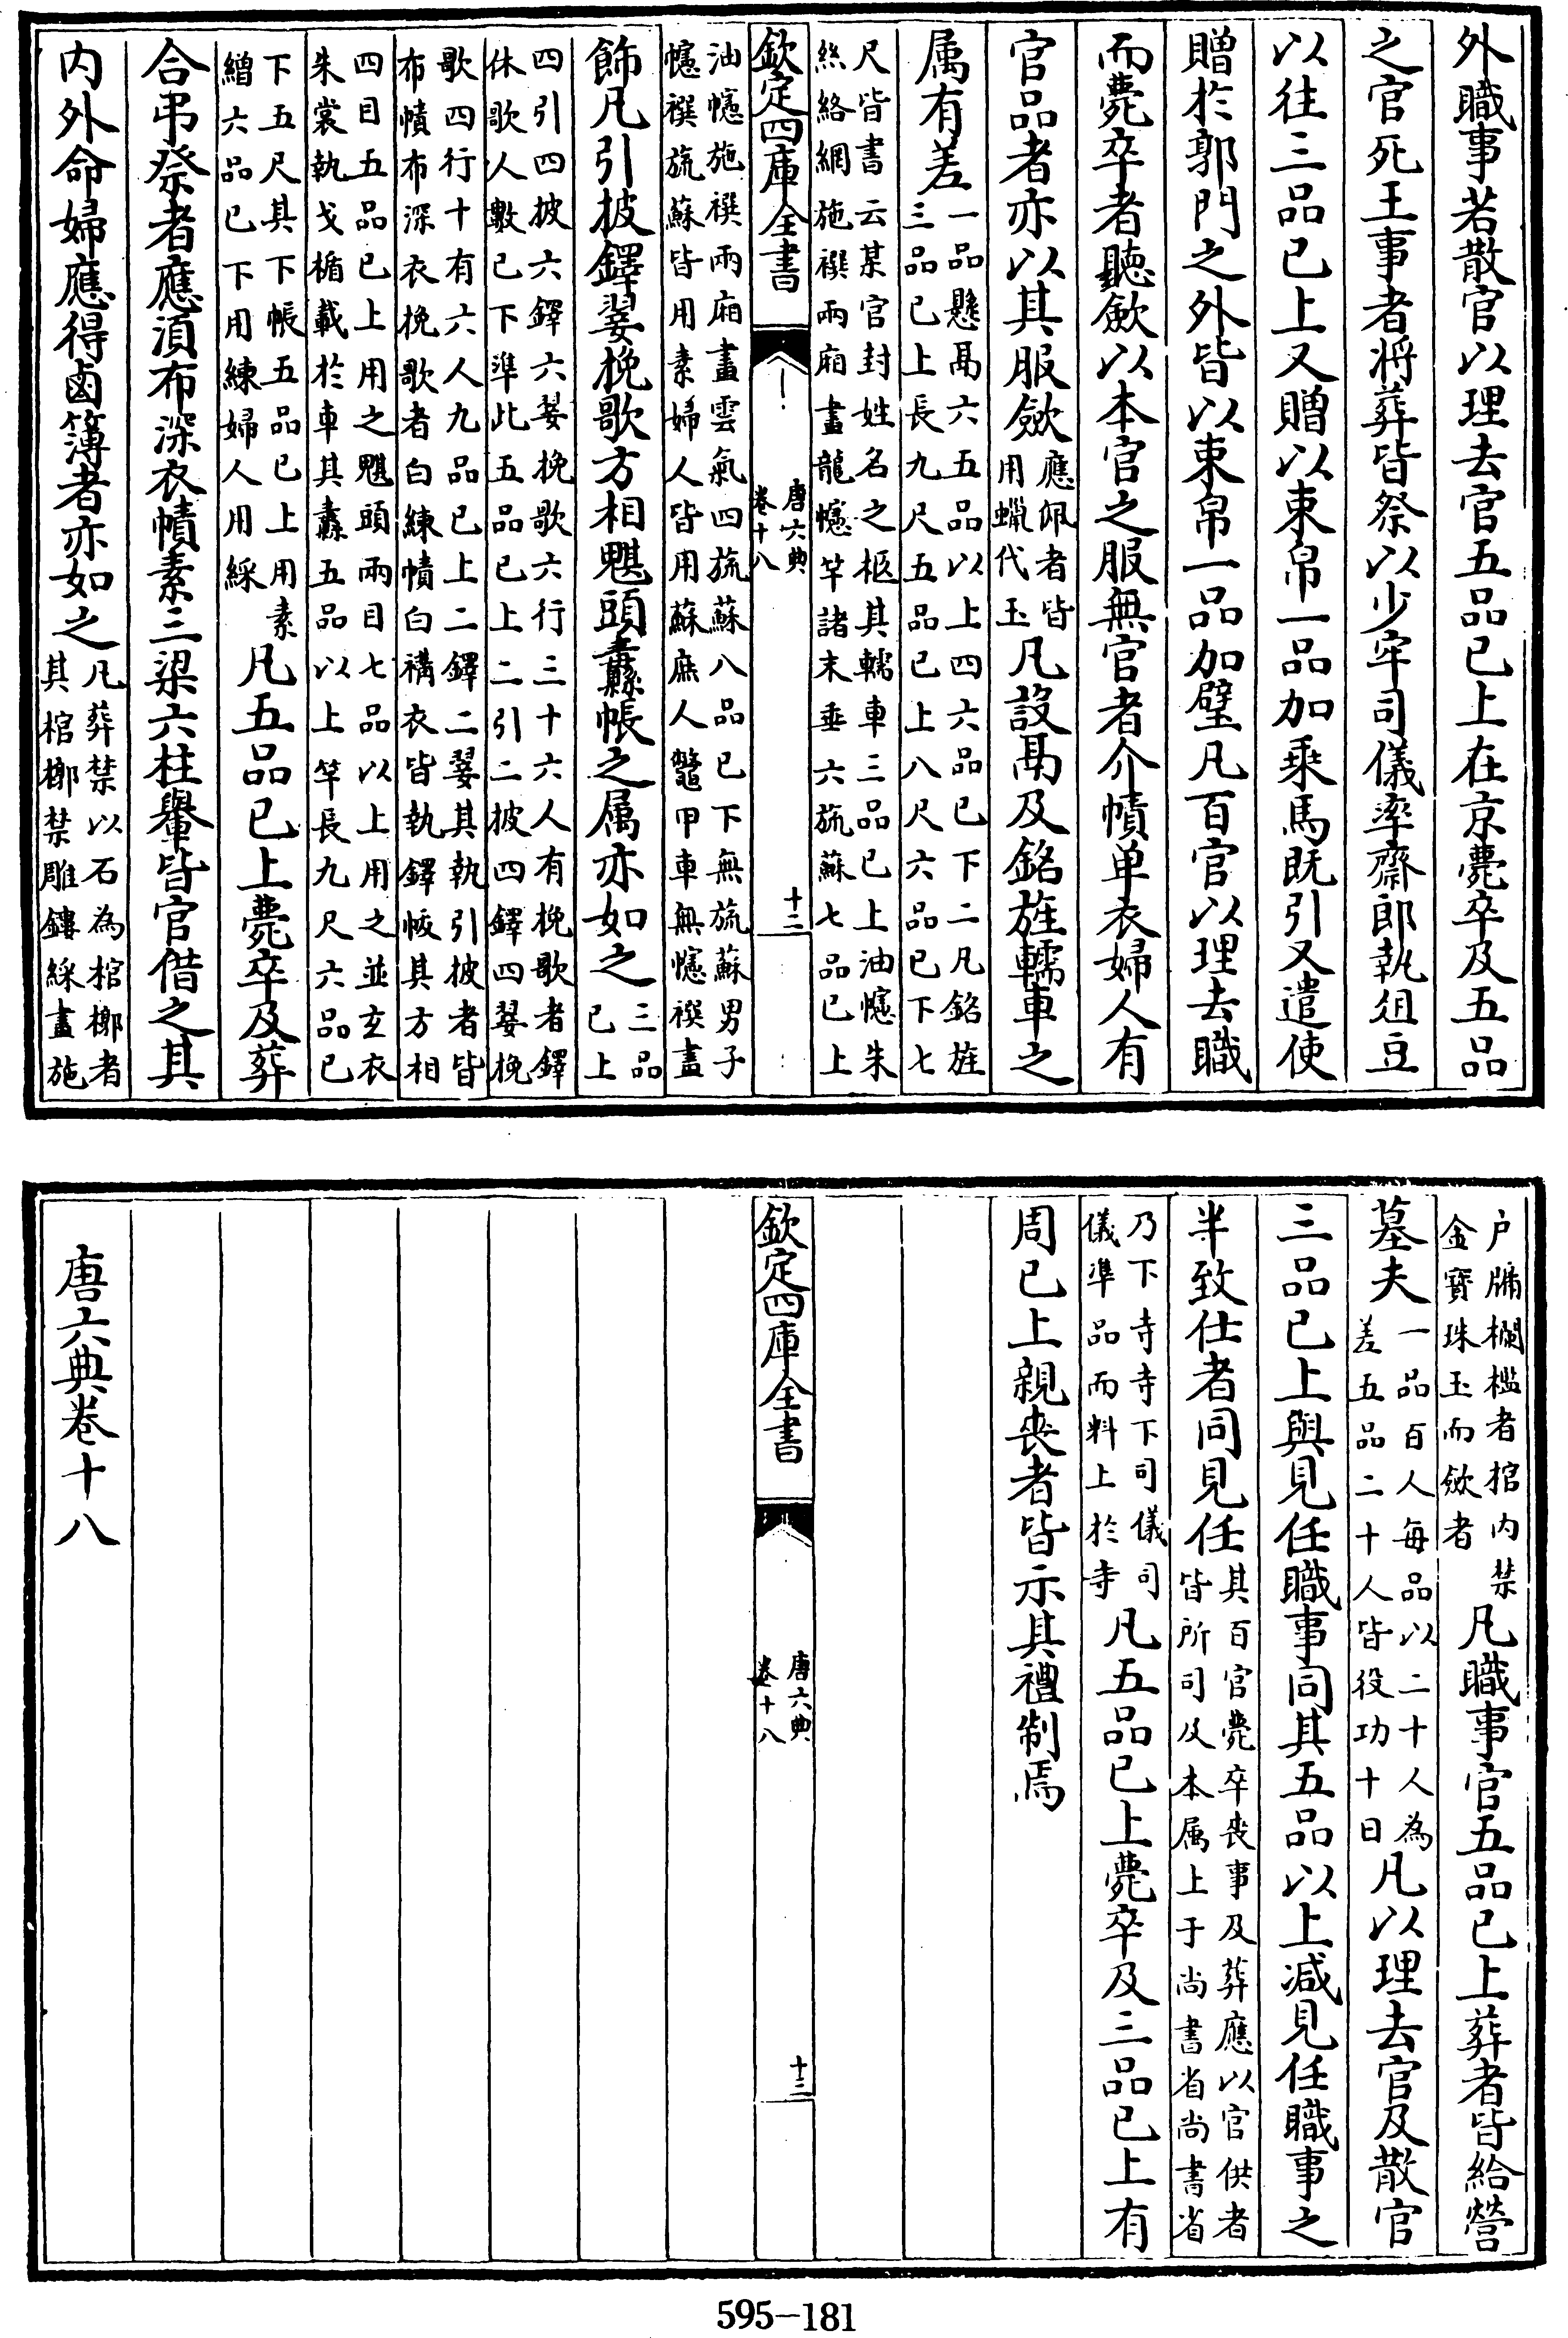 外職事若散官以理去官五品已上在京薨卒及五品
之官死王事者將葬皆祭以少牢司儀率齋郎執俎豆
以往三品已上又贈以束帛一品加乘馬既引又遣使
贈於郭門之外皆以束帛一品加璧凡百官以理去職
而薨卒者聽歛以本官之服無官者介幘单衣婦人有
官品者亦以其服歛應佩者皆用蠟代玉凡設鬲及銘旌轜車之
属有差一品懸鬲六五品以上四六品已下二凡銘旌三品已上長九尺五品已上八尺六品已下七
尺皆書云某官封姓名之柩其轜車三品已上油幰朱絲絡網施襈兩廂畫龍幰竿諸末垂六旒蘇七品已上
欽定四庫全書
唐六典
卷十八
十二
油幰施襈兩廂畫雲氣四旒蘇八品已下無旒蘇男子幰襈旒蘇皆用素婦人皆用蘇庶人鼈甲車無幰襈畫
飾凡引披鐸翣挽歌方相魌頭纛帳之属亦如之三品已上
四引四披六鐸六翣挽歌六行三十六人有挽歌者鐸休歌人數已下準此五品已上二引二披四鐸四翣挽
歌四行十有六人九品已上二鐸二翣其執引披者皆布幘布深衣挽歌者白練幘白褠衣皆執鐸帔其方相
四目五品已上用之魌頭兩目七品以上用之並玄衣朱裳執戈楯載於車其纛五品以上竿長九尺六品已
下五尺其下帳五品已上用素繒六品已下用練婦人用綵凡五品已上薨卒及葬
合弔祭者應湏布深衣幘素三梁六柱轝皆官借之其
内外命婦應得鹵簿者亦如之凡葬禁以石為棺槨者其棺槨禁雕鏤綵畫施
户牖欄檻者棺内禁金寶珠玉而歛者凡職事官五品已上葬者皆給營
墓夫一品百人每品以二十人為差五品二十人皆役功十日凡以理去官及散官
三品已上與見任職事同其五品以上減見任職事之
半致仕者同見任其百官薨卒丧事及葬應以官供者皆所司及本属上于尚書省尚書省
乃下寺寺下司儀司儀準品而料上於寺凡五品已上薨卒及三品已上有
周已上親丧者皆示其禮制焉
欽定四庫全書
唐六典
卷十八
十三
唐六典卷十八
595-181